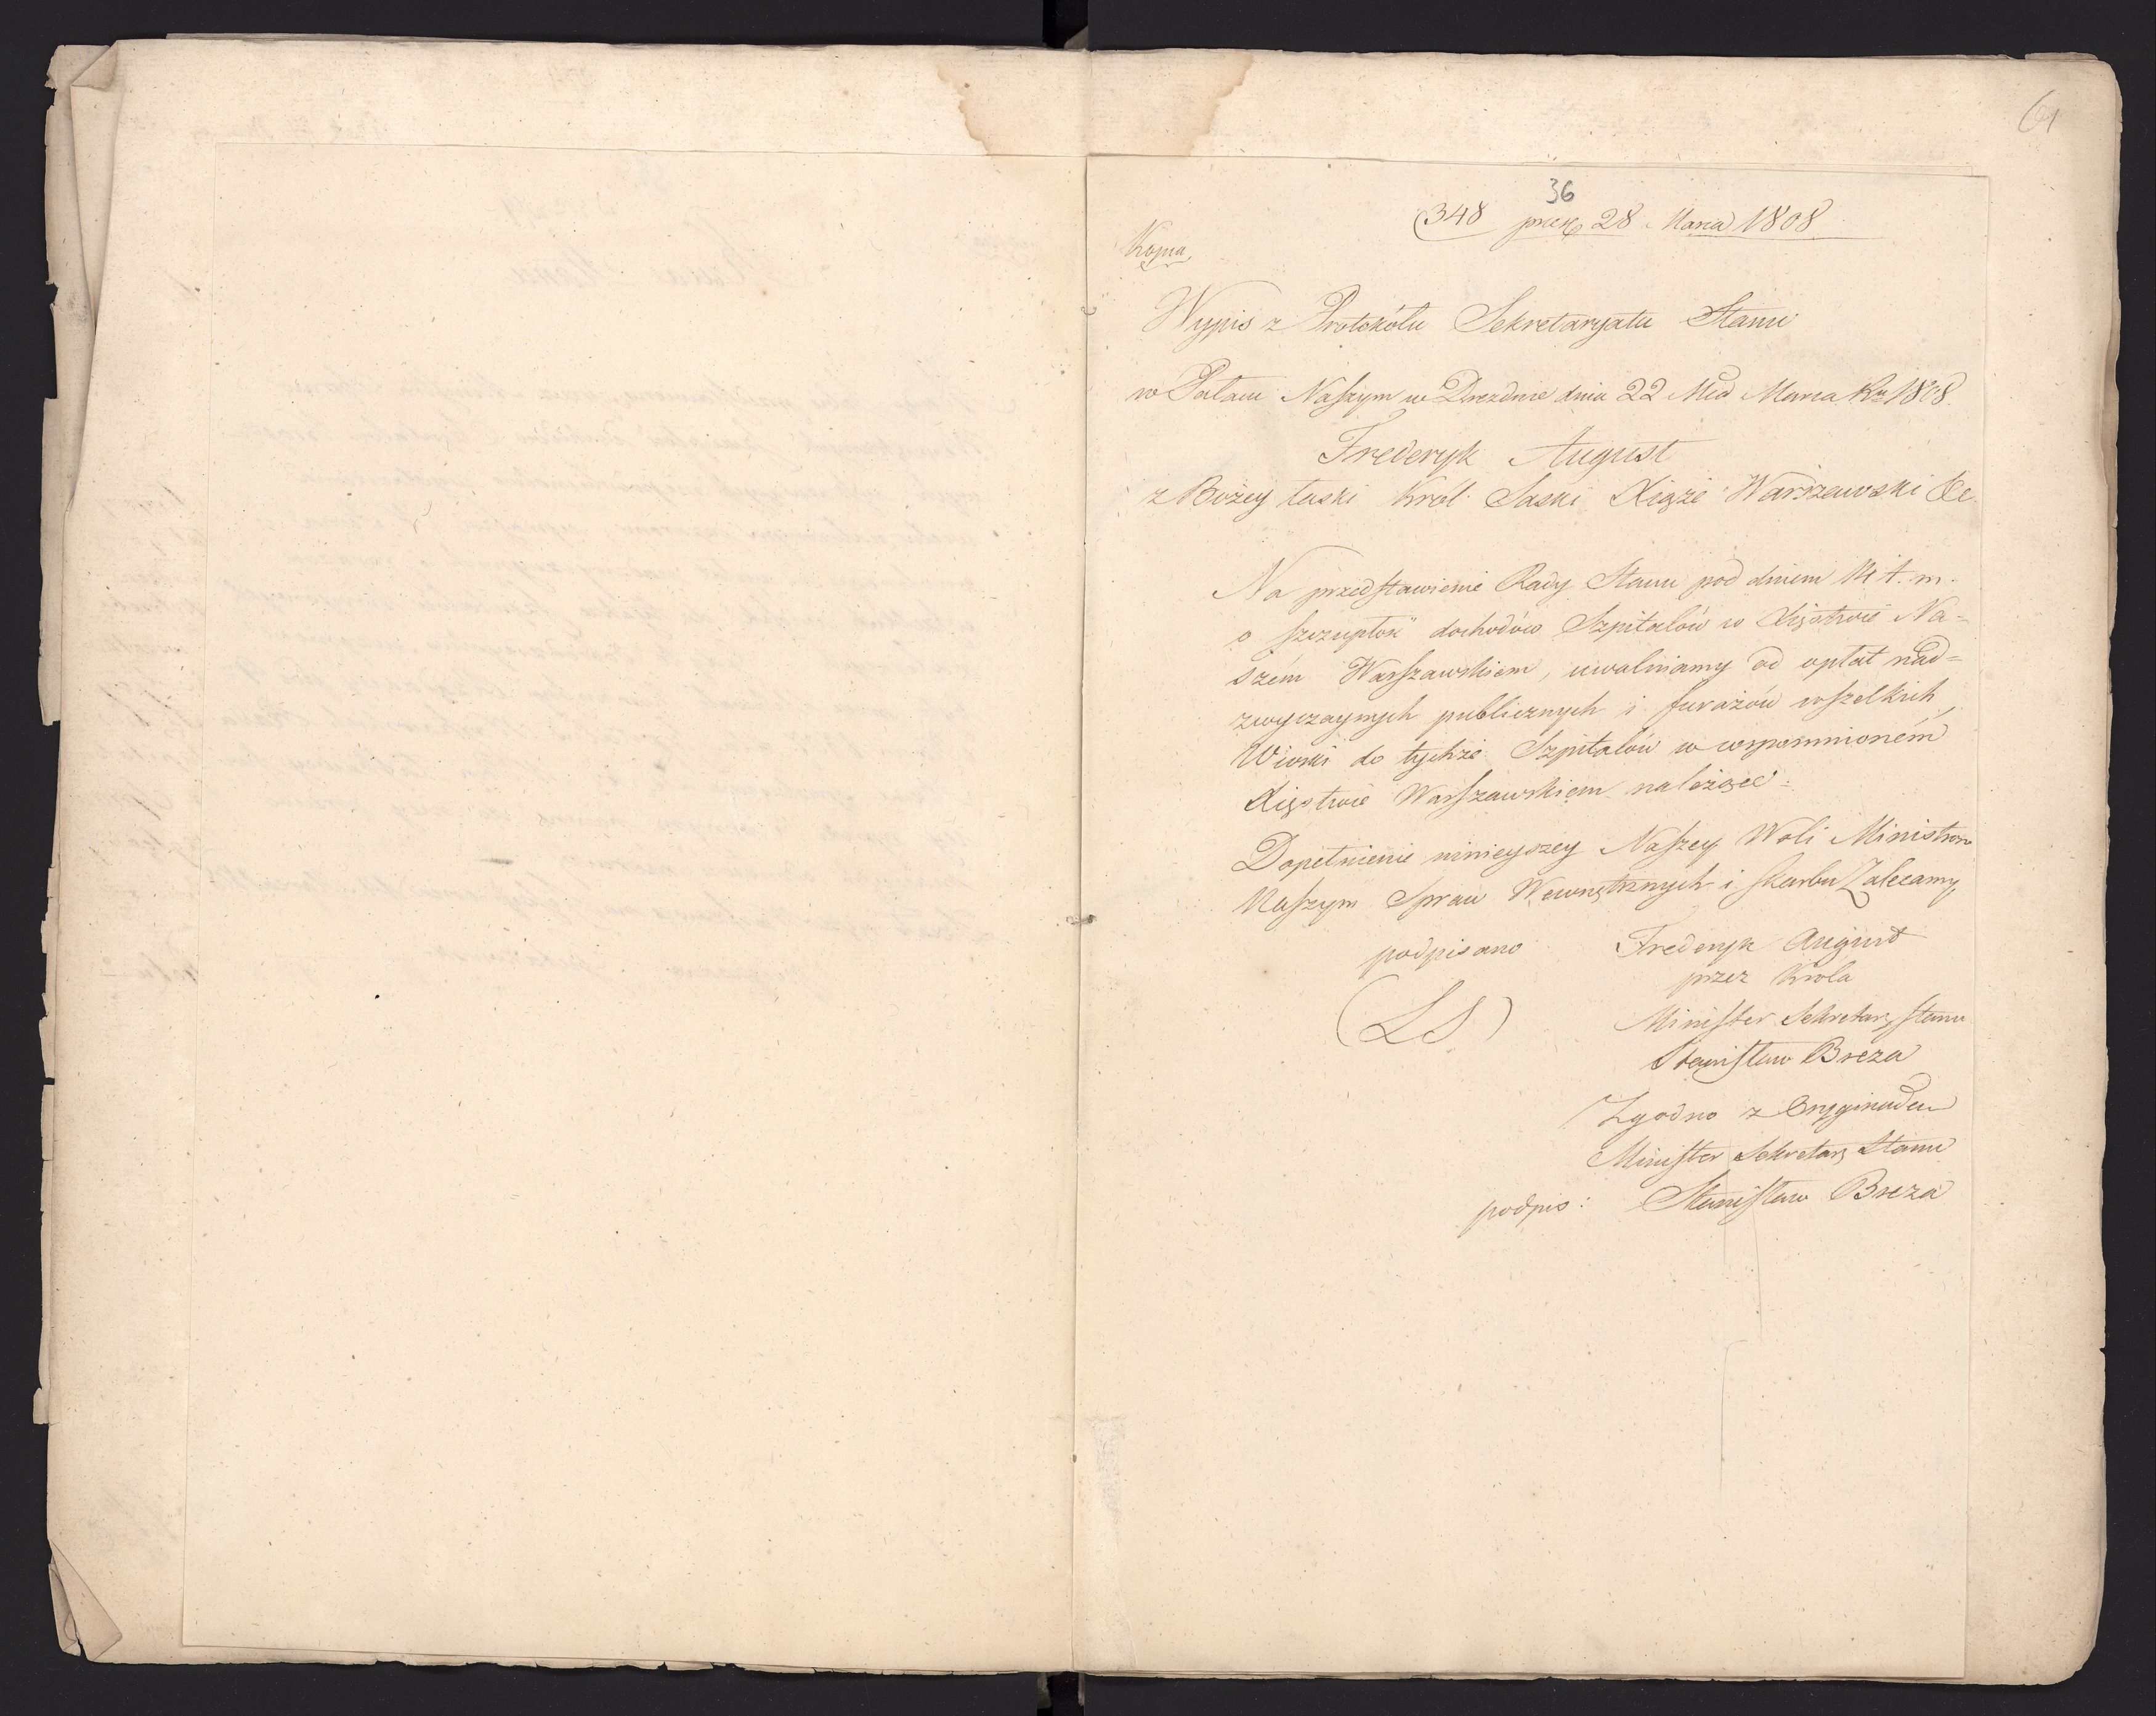 61
36
(348 prez 28 Marca 1808
Kopia
Wypis z Protokólu Sekretaryatu Stanu
w Pałacu Naszym w Dreznie dnia 22 Mca Marca Ru 1808
Frederyk August
z Bożey łaski Król Saski Xiąże Warszawski &c
Na przedstawienie Rady Stanu pod dniem 14 t. m.
o szczupłok dochodów Szpitalów w Xięstwie Na=
szém Warszawskiem, uwalniamy od opłat nad=
zwyczaynych publicznych i furażów wszelkich,
Wioski do tychże Szpitalów w wspomnioném
Xięstwie Warszawskiem należące.
Dopełnienie ninieyszey Naszey Woli Ministrom
Naszym Spraw Wewnętrznych i Skarbu Zalecamy,
podpisano Frederyk August
przez Króla
(LS) Minister Sekretarz Stanu
Stanisław Breza
Zgodno z Oryginałem
Minister Sekretarz Stanu
podpis: Stanisław Breza